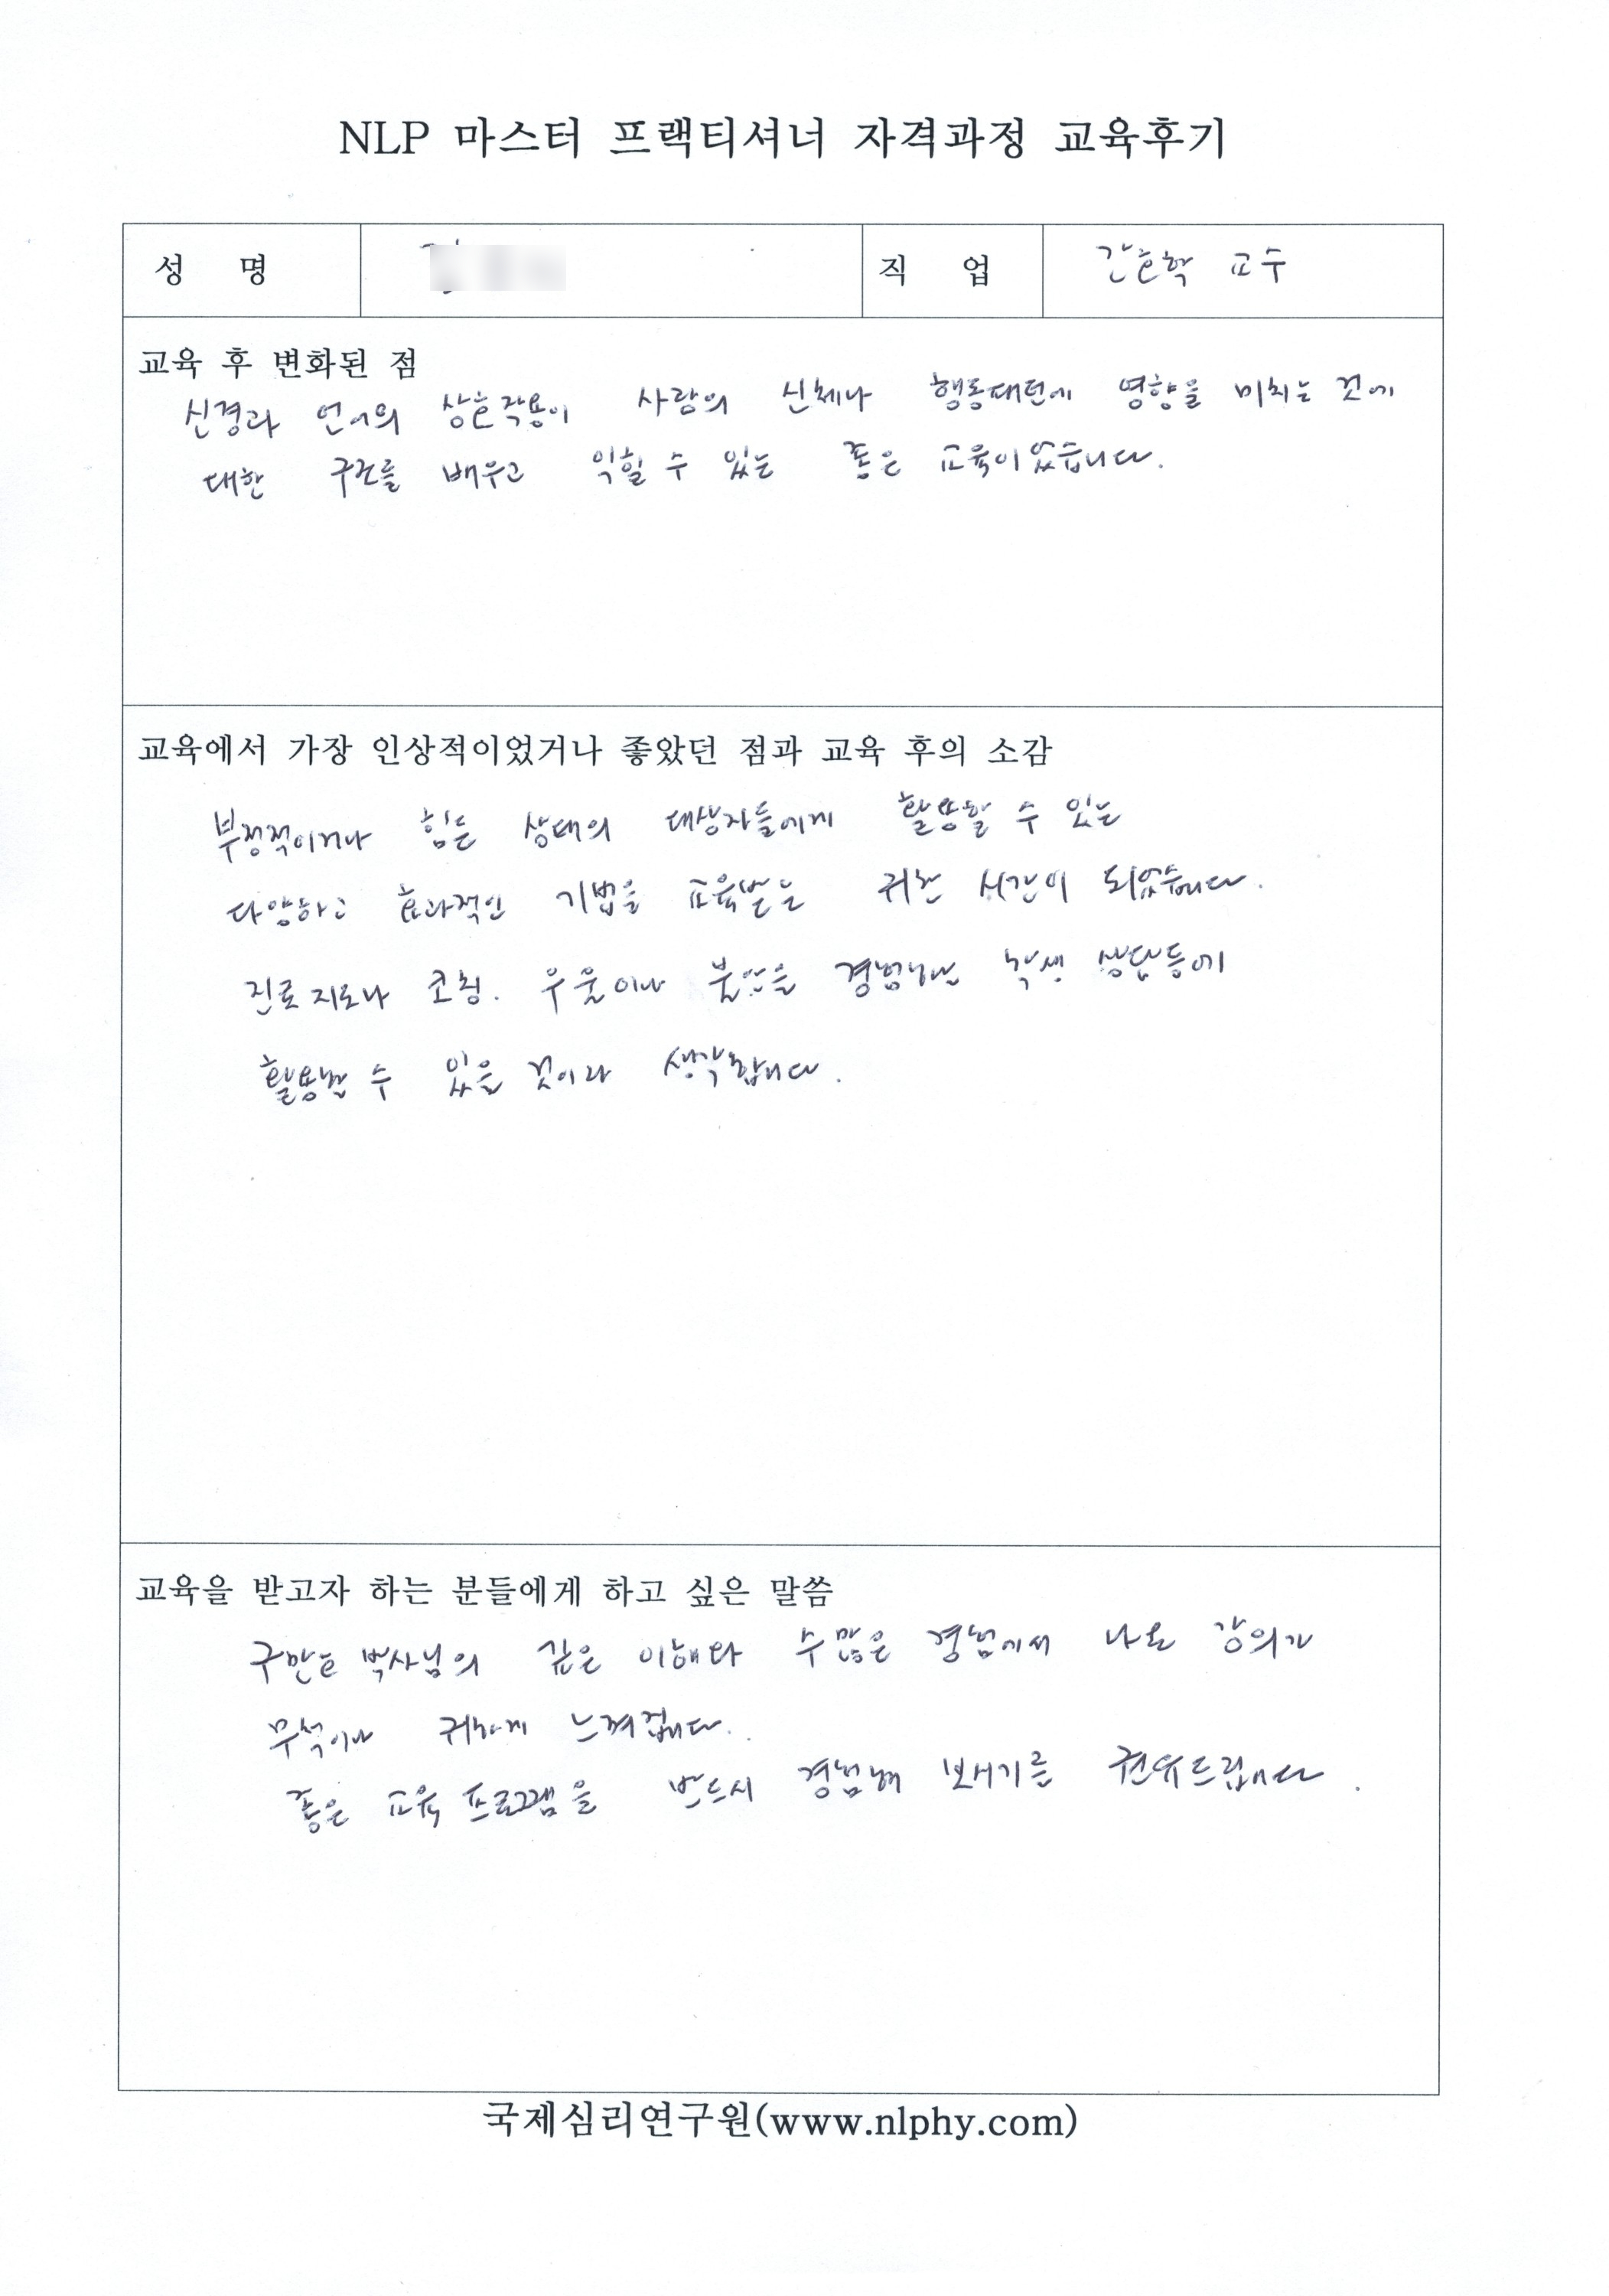 NLP 마스터 프랙티셔너 자격과정 교육후기
성 명 직 업 간호학 교수
교육 후 변화된 점
신경과 언어의 상호작용이 사람의 신체나 행동패턴에 영향을 미치는 것에
대한 구조를 배우고 익힐 수 있는 좋은 교육이었습니다.
교육에서 가장 인상적이었거나 좋았던 점과 교육 후의 소감
부정적이거나 힘든 상태의 대상자들에게 활용할 수 있는
다양하고 효과적인 기법을 교육받는 귀한 시간이 되었습니다.
진로 지도나 코칭. 우울이나 불안을 경험하는 학생 상담등에
활용할 수 있을 것이라 생각합니다.
교육을 받고자 하는 분들에게 하고 싶은 말씀
구만호 박사님의 깊은 이해와 수많은 경험에서 나온 강의가
무척이나 귀하게 느껴집니다.
좋은 교육 프로그램을 반드시 경험해 보시기를 권유드립니다.
국제심리연구원(www.nlphy.com)